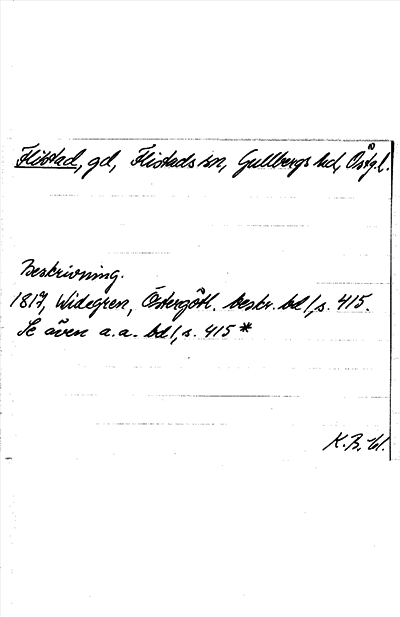 Flistad, gd, Flistads sn, Gullbergs hd, Östg.l.
Beskrivning.
1817, Widegren, Östergötl. beskr. bd 1, s. 415.
Se även a.a. bd 1, s. 415 *
K.B. Wl.